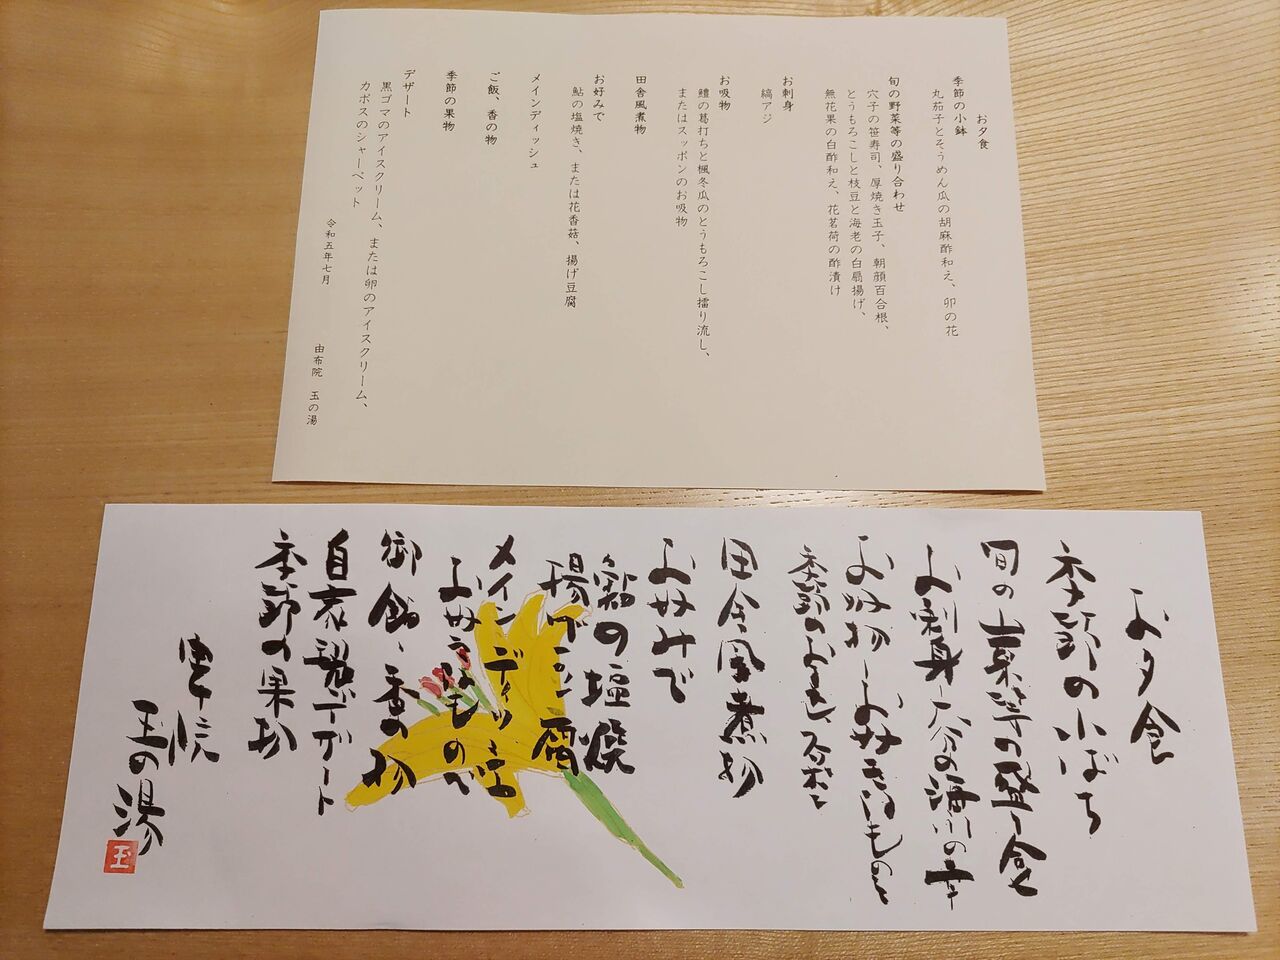 お夕食
季節の小鉢
丸茄子とそうめん瓜の胡麻酢和え、卯の花
旬の野菜等の盛り合わせ
穴子の笹寿司、厚焼き玉子、朝顔百合根、
とうもろこしと枝豆と海老の白扇揚げ、
無花果の白酢和え、花茗荷の酢漬け
お刺身
縞アジ
お吸物
鱧の葛打ちと楓冬瓜のとうもろこし擂り流し、
またはスッポンのお吸物
田舎風煮物
お好みで
鮎の塩焼き、または花香菇、揚げ豆腐
メインディッシュ
ご飯、香の物
季節の果物
デザート
黒ゴマのアイスクリーム、または卵のアイスクリーム、
カボスのシャーベット
令和五年七月
由布院 玉の湯
お夕食
季節の小ばち
旬の山菜等の盛り合せ
お刺身 大分の海川の幸
お好きなものを
季節の
田舎風煮物
お好みで
鮎の塩焼
揚げ豆腐
メインディッシュ
お好きなもので
御飯、香の物
自家製デザート
季節の果物
由布院
玉の湯
玉